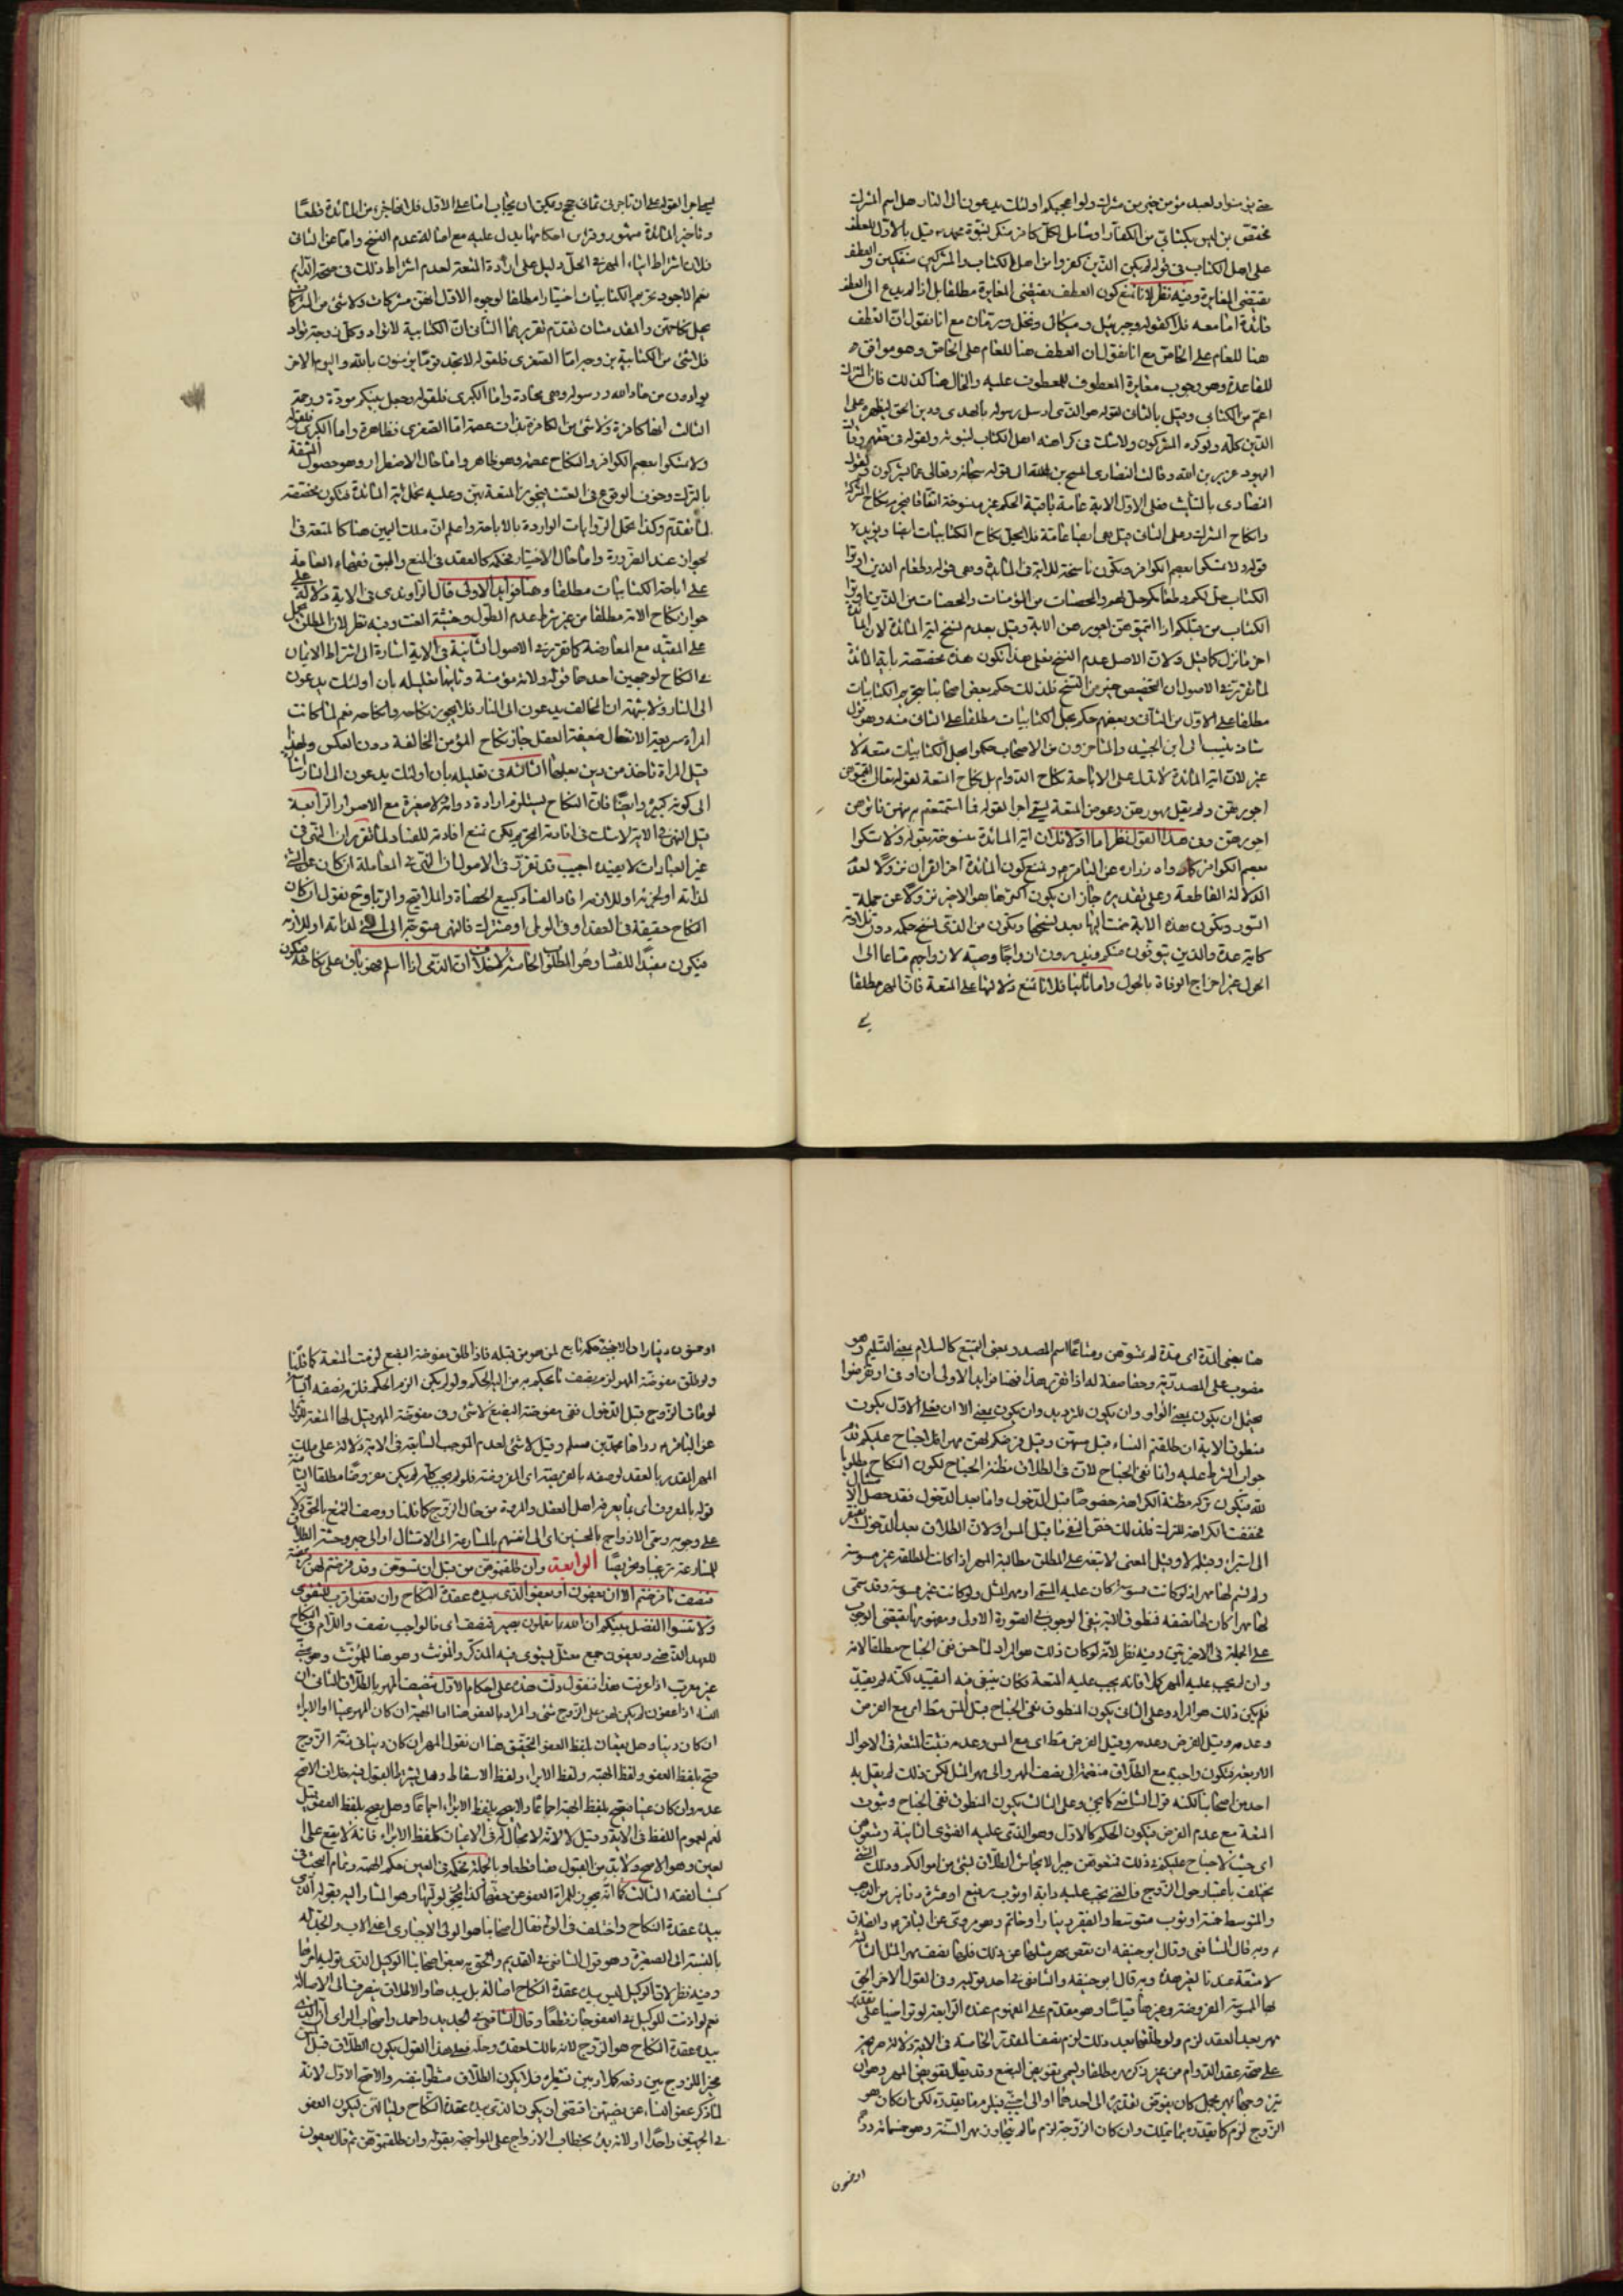 حتى يؤمنوا ولعبد مؤمن خير من مشرك ولو اعجبكم اولئك يدعون الى النار هل اسم المشرك
مختص بمن ليس بكتابي من الكفار او شامل لكل كافر منكر لنبوة محمد ص قيل بالاول للعطف
على اهل الكتاب في قوله لم يكن الذين كفروا من اهل الكتاب والمشركين منفكين والعطف
يقتضي المغايرة وفيه نظر لانا نمنع كون العطف يقتضي المغايرة مطلقا بل اذا لم يدع الى العطف
فائدة اما معه فلا كقوله وجبريل وميكال ونخل ورمان مع انا نقول ان العطف
هنا للعام على الخاص مع انا نقول ان العطف هنا للعام على الخاص وهو موافق
للقاعدة وهو وجوب مغايرة المعطوف للمعطوف عليه والحال هنا كذلك فان المشرك
اعم من الكتابي وقيل بالثاني لقوله هو الذي ارسل رسوله بالهدى ودين الحق ليظهره على
الدين كله ولو كره المشركون ولا شك في كراهة اهل الكتاب لنبوته ولقوله في حقهم وقالت
اليهود عزير بن الله وقالت النصارى المسيح بن الله الى قوله سبحانه وتعالى عما يشركون
فعلى الاول الاية عامة باقية الحكم غير منسوخة اتفاقا فيحرم نكاح المشركة
وانكاح المشرك وعلى الثاني قيل هي ايضا عامة فلا يحل نكاح الكتابيات ايضا ويؤيده
قوله ولا تمسكوا بعصم الكوافر وتكون ناسخة للاية في المائدة وهي قوله وطعام الذين اوتوا
الكتاب حل لكم وطعامكم حل لهم والمحصنات من المؤمنات والمحصنات من الذين اوتوا
الكتاب من قبلكم اذا اتيتموهن اجورهن الاية وقيل بعدم نسخ اية المائدة لان المائدة
اخر ما نزل كما قيل ولان الاصل عدم النسخ فعلى هذا تكون هذه مخصصة باية المائدة
لما تقرر في الاصول ان التخصيص خير من النسخ فلذلك حكم بعض اصحابنا بتحريم الكتابيات
مطلقا على الاول من الثاني وبعضهم حكم بحل الكتابيات مطلقا على الثاني منه وهو قول
شاذ ينسب الى ابن الجنيد والمتاخرون من الاصحاب حكموا بحل الكتابيات متعة لا
غير لان اية المائدة لا تدل على الاباحة نكاح الدوام بل نكاح المتعة لقوله تعالى اتيتموهن
اجورهن ولم يقل مهورهن وعوض المتعة يسمى اجرا لقوله فما استمتعتم به منهن فاتوهن
اجورهن وفي هذا القول نظر اما اولا فلان اية المائدة منسوخة بقوله ولا تمسكوا
بعصم الكوافر كما رواه زرارة عن الباقر ع ونمنع كون المائدة اخر القران نزولا لعدم
الدلالة القاطعة وعلى تقديره جاز ان يكون اكثرها هو الاخير نزولا عن جملة
السور وتكون هذه الاية مثالها بعد نسخها وتكون من الذي نسخ حكمه دون تلاوته
كاية عدة والذين يتوفون منكم ويذرون ازواجا وصية لازواجهم متاعا الى
الحول غير اخراج الوفاة بالحول واما ثانيا فلانا نمنع دلالتها على المتعة فان المهر مطلقا
ليجاجرا لقوله على ان تاجرني ثماني حجج ويمكن ان يجاب اما على الاول فلانها اخر من المائدة قطعا
وتاخير المائدة مشهور وقراين احكامها يدل عليه مع اصالة عدم النسخ واما عن الثاني
فلان اشتراط ايتاء المهر في الحل دليل على ارادة المتعة لعدم اشتراط ذلك في صحة الدايم
نعم الاجود تحريم الكتابيات اختيارا مطلقا لوجوه الاول انهن مشركات ولا شئ من المشركات
يحل نكاحهن والمقدمتان تقدم تقريرهما الثاني ان الكتابية لا تواد وكل زوجة تواد
فلا شئ من الكتابية بزوجة اما الصغرى فلقوله لا تجد قوما يؤمنون بالله واليوم الاخر
يوادون من حاد الله ورسوله وهي محادة واما الكبرى فلقوله وجعل بينكم مودة ورحمة
الثالث انها كافرة ولا شئ من الكافرة بذات عصمة اما الصغرى فظاهرة واما الكبرى فلقوله
ولا تمسكوا بعصم الكوافر والنكاح عصمة وهو ظاهر واما حال الاضطرار وهو حصول المشقة
بالترك وخوف الوقوع في العنت فيجوز المتعة بهن وعليه تحمل اية المائدة فتكون مخصصة
لما تقدم وكذا تحمل الروايات الواردة بالاباحة واعلم ان ملك اليمين هنا كالمتعة في
الجواز عند الضرورة واما حال الاختيار فحكمه كالعقد في المنع
على اباحة الكتابيات مطلقا وهنا فوايد الاولى قال الراوندي في الاية دلالة على
جواز نكاح الامة مطلقا من غير شرط عدم الطول وخشية العنت وفيه نظر لان المطلق يحمل
على المقيد مع المعارضة كما تقرر في الاصول الثانية في الاية اشارة الى اشتراط الايمان
في النكاح لوجهين احدهما قوله ولامة مؤمنة وثانيها تعليله بان اولئك يدعون
الى النار ولا شبهة ان المخالف يدعون الى النار فلا يجوز نكاحه وانكاحه نعم لما كانت
المراة سريعة الانتقال ضعيفة العقل جاز نكاح المؤمن المخالفة دون العكس ولهذا
قيل المراة تاخذ من دين بعلها الثالثة في تعليله بان اولئك يدعون الى النار اشارة
الى كونه كبيرة وايضا فان النكاح يستلزم ارادة دوامه ولا صغيرة مع الاصرار الرابعة
قيل النهي في الاية لا شك في افادته التحريم لكن نمنع افادته للفساد لما تقرر ان النهي في
غير العبادات لا يفيده اجيب قد تقرر في الاصول ان النهي في المعاملة ان كان عن الشئ
لذاته او لجزئه او للازمه افاد الفساد كبيع الحصاة والملاقيح والربا وح نقول ان كان
النكاح حقيقة في العقد او في الوطي او مشترك فالنهي متوجه الى الشئ لذاته او للازمه
فيكون مفيدا للفساد وهو المطلوب الخامسة لا خلاف ان الذمي اذا اسلم فهو باق على نكاحه فيكون
هنا بمعنى المدة اي مدة لم تمسوهن ومتاعا اسم المصدر وبمعنى التمتيع كالسلام بمعنى التسليم وهو
منصوب على المصدرية وحقا صفة له اذا تقرر هذا فهنا فوايد الاولى ان او في او تفرضوا
يحتمل ان يكون بمعنى الواو وان يكون للترديد وان يكون بمعنى الا ان فعلى الاول يكون
منطوق الاية ان طلقتم النساء قبل مسهن وقبل فرضكم لهن مهرا فلا جناح عليكم
جواب الشرط عليه وانما نفى الجناح لان في الطلاق مظنة الجناح لكون النكاح مطلوبا
لله فيكون تركه مظنة الكراهة خصوصا قبل الدخول واما بعد الدخول فقد حصل الامتثال
فخففت الكراهة للترك فلذلك خص النفي بما قبل المس ولان الطلاق بعد الدخول يفتقر
الى استبراء وقبله لا وقيل المعنى لا تبعة على المطلق بمطالبة المهر اذا كانت المطلقة غير ممسوسة
ولم يسم لها مهر اذ لو كانت ممسوسة كان عليه المسمى او مهر المثل ولو كانت غير ممسوسة وقد سمى
لها مهرا كان لها نصفه فمنطوق الاية ينفي الوجوب في الصورة الاولى ومفهومها يقتضي الوجوب
على الجملة في الاخيرتين وفيه نظر لانه لو كان ذلك هو المراد لما حسن نفي الجناح مطلقا لانه
وان لم يجب عليه المهر كملا فانه يجب عليه المتعة وكان ينبغي فيه التقييد لكنه لم يقيد
فلم يكن ذلك هو المراد وعلى الثاني يكون المنطوق نفي الجناح قبل المس فقط اي مع الفرض
وعدمه وقبل الفرض فقط اي مع المس وعدمه فتثبت المتعة في الاحوال
الاربعة فتكون واجبة مع الطلاق منضمة الى نصف المهر والى مهر المثل لكن ذلك لم يقل به
احد من اصحابنا لكنه قول الشافعي كما يجئ وعلى الثالث يكون المنطوق نفي الجناح وثبوت
المتعة مع عدم الفرض فيكون الحكم كالاول وهو الذي عليه الفتوى الثانية ومتعوهن
اي حيث لا جناح عليكم في ذلك فمتعوهن جبرا لايحاش الطلاق بشئ من اموالكم وذلك الشئ
يختلف باعتبار حال الزوج فالغني يجب عليه دابة او ثوب رفيع او عشرة دنانير من الذهب
والمتوسط خمسة او ثوب متوسط والفقير دينارا وخاتم وهو مروي عن الباقر ع والصادق
ع وبه قال الشافعي وقال ابو حنيفة ان نقص مهر مثلها عن ذلك فلها نصف مهر المثل الثالثة
لا متعة عندنا لغير هذه وبه قال ابو حنيفة والشافعي في احد قوليه وفي القول الاخر الحق
بها الممسوسة المفروضة وغيرها قياسا وهو مقدم على المفهوم عنده الرابعة لو تراضيا على تقدير
مهر بعد العقد لزم ولو طلقها بعد ذلك لزم نصف المقدر الخامسة في الاية دلالة صريحة
على صحة عقد الدوام من غير ذكر مهر مطلقا ويسمى تفويض البضع وقد يقال تفويض المهر وهو ان
يتزوجها بمهر مجمل كان يفوض تقديره الى احدهما او الى اجنبي فيلزم ما يقدره لكن ان كان هو
الزوج لزم كما يقدره بما يتملك وان كان الزوجة لزم ما لم يتجاوز مهر السنة وهو خمسمائة درهم
او خمسون
او خمسون دينارا والاجنبي حكمه تابع لمن هو من قبله فاذا طلق مفوضة البضع لزمت المتعة كما قلنا
ولو طلق مفوضة المهر لزم نصف ما يحكم به من اليه الحكم ولو لم يكن الزم الحكم فلزم نصفه
لو مات الزوج قبل الدخول ففي مفوضة البضع لا شئ وفي مفوضة المهر قيل لها المتعة
عن الباقر ع رواها محمد بن مسلم وقيل لا شئ لعدم الموجب السابعة في الاية دلالة على ملك
المهر المقدر بالعقد لوصفه بالفريضة اي المفروضة فلو لم يجب كله لم يكن مفروضا مطلقا الثامنة
قوله بالمعروف اي بما يعرفه اهل العقل والمروة من حال الزوج كما قلنا ووصف المتع بالحق دلالة
على وجوبه وسمى الازواج بالمحسنين اي الى انفسهم بالمسارعة الى الامتثال او الى جبر وحشة الطلاق
للمسارعة ترغيبا وتحريصا الرابعة وان طلقتموهن من قبل ان تمسوهن وقد فرضتم لهن فريضة
فنصف ما فرضتم الا ان يعفون او يعفو الذي بيده عقدة النكاح وان تعفوا اقرب للتقوى
ولا تنسوا الفضل بينكم ان الله بما تعملون بصير فنصف اي فالواجب نصف واللام في النكاح
للعهد الذهني ويعفون جمع معتل يستوي فيه المذكر والمؤنث وهو هنا للمؤنث وهو مبني
غير معرب اذا عرفت هذا فنقول دلت هذه على احكام الاول تنصيف المهر بالطلاق الثاني ان
النساء اذا عفون لم يكن لهن على الزوج شئ والمراد بالعفو هنا اما الهبة ان كان المهر عينا او الابراء
ان كان دينا وهل يقعان بلفظ العفو التحقيق هنا ان نقول المهر ان كان دينا في ذمة الزوج
صح بلفظ العفو ولفظ الهبة ولفظ الابراء ولفظ الاسقاط وهل يشترط القبول فيه خلاف الاصح
عدمه وان كان عينا فيصح بلفظ الهبة اجماعا ولا يصح بلفظ الابراء اجماعا وهل يصح بلفظ العفو قيل
نعم لعموم اللفظ في الاية وقيل لا لانه لا مجال له في الاعيان كلفظ الابراء فانه لا يقع على
العين وهو الاصح ولا بد من القبول هنا قطعا وبالجملة حكمه في العين حكم الهبة وتمام البحث في
كتب الفقه الثالث كما انه يجوز للمراة العفو عن حقها كذا يجوز لوليها وهو المشار اليه بقوله الذي
بيده عقدة النكاح واختلف في الولي فقال اصحابنا هو الولي الاجباري اعني الاب والجد له
بالنسبة الى الصغيرة وهو قول الشافعي في القديم والحق به بعض اصحابنا الوكيل الذي توليه امرها
وفيه نظر لان الوكيل ليس بيده عقدة النكاح اصالة بل بيدها والاطلاق ينصرف الى الاصالة
نعم لو اذنت للوكيل في العفو جاز قطعا وقال الشافعي في الجديد واحمد واصحاب الراي ان الذي
بيده عقدة النكاح هو الزوج لانه مالك لعقده وحله فعلى هذا القول يكون الطلاق قبل
مخيرا للزوج بين دفعه كملا وبين تشطيره فلا يكون الطلاق مشطرا بنفسه والاصح الاول لانه
لما ذكر عفو النساء عن نصيبهن اقتضى ان يكون الذي بيده عقدة النكاح وليا لهن ليكون العفو
في الجهتين واحدا ولانه بدء بخطاب الازواج على المواجهة بقوله وان طلقتموهن ثم قال يعفون